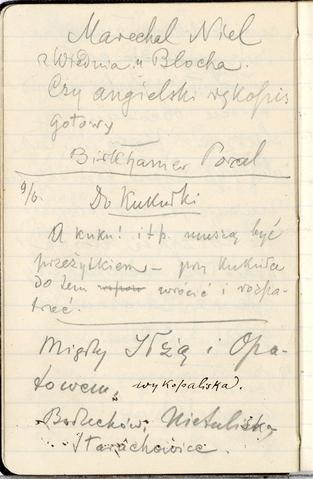 Marechal Niel
z Wiednia u Blocha.
Czy angielski rękopis
gotowy
Porcel
9/6.
Do Kukułki
A kuku! i t p. muszą być
przeżytkiem – przy Kukułce
do tem wrócić i rozpa-
trzeć.
Między Iłżą i Opa-
towem, wykopaliska.
Boduchów, Nietulisko,
Starachowice.